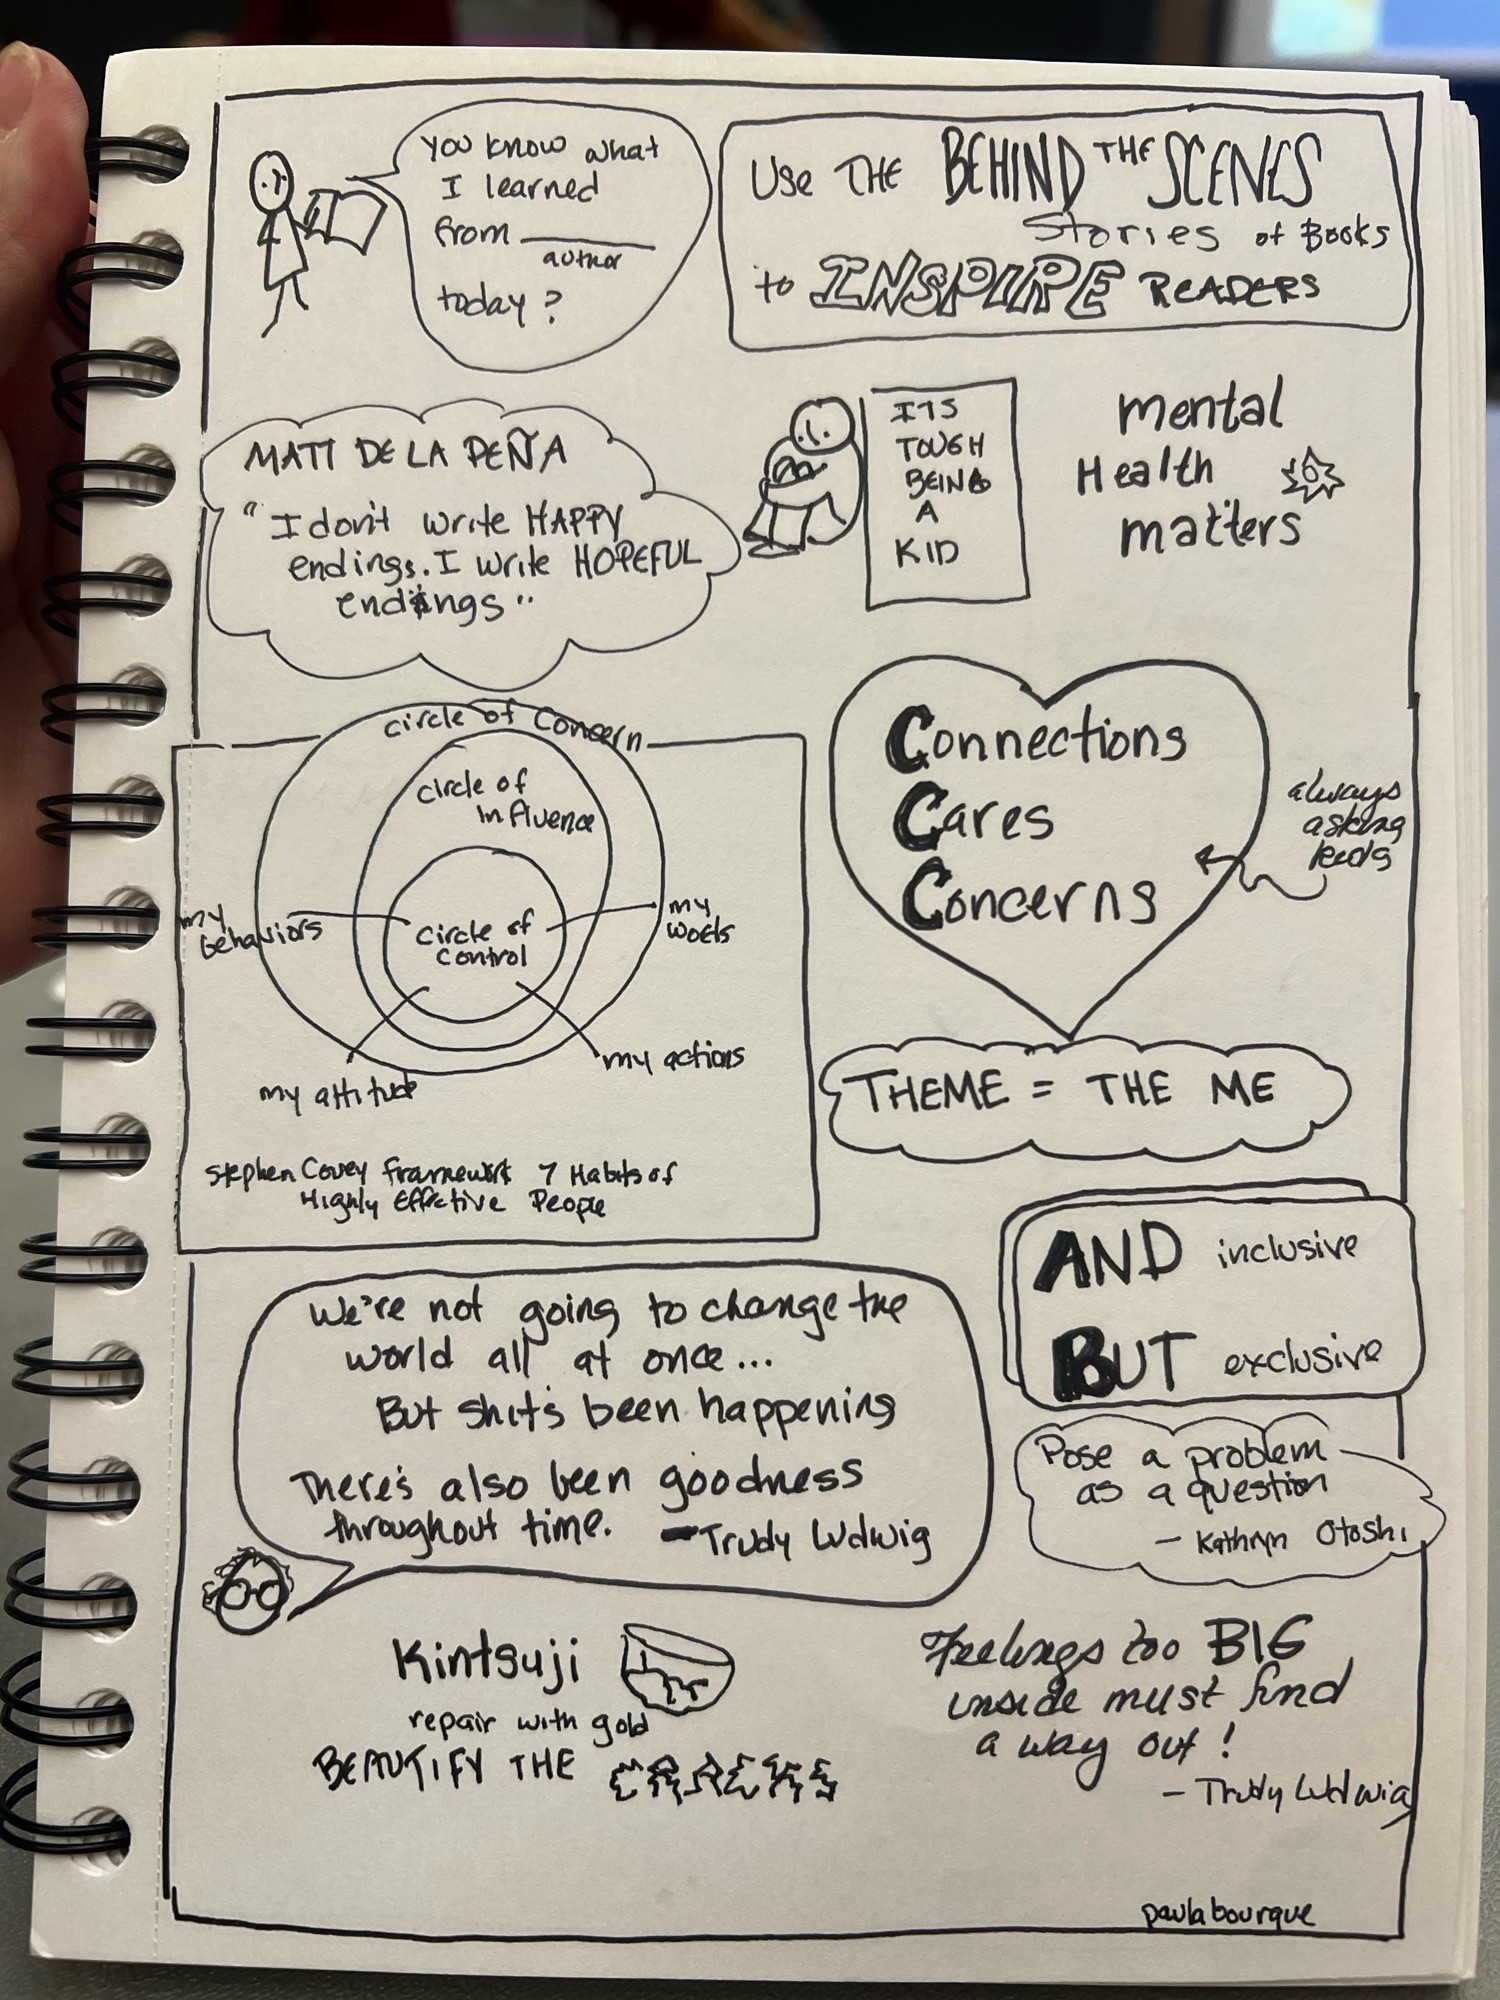 You know what
I learned
from ________
author
today?
Use THE BEHIND THE SCENES
Stories of Books
to INSPIRE READERS
MATT DE LA PEÑA
"I don't write HAPPY
endings. I write HOPEFUL
endings"
ITS
TOUGH
BEING
A
KID
mental
Health
matters
circle of Concern
circle of
influence
circle of
control
my
behaviors
my
words
my attitude
my actions
Stephen Covey framework 7 Habits of
Highly Effective People
Connections
Cares
Concerns
always
asking
THEME = THE ME
AND inclusive
BUT exclusive
We're not going to change the
world all at once...
But shit's been happening
There's also been goodness
throughout time. - Trudy Ludwig
Pose a problem
as a question
- Kathryn Otoshi
Kintsuji
repair with gold
BEAUTIFY THE CRACKS
Feelings too BIG
inside must find
a way out!
- Trudy Ludwig
paulabourque